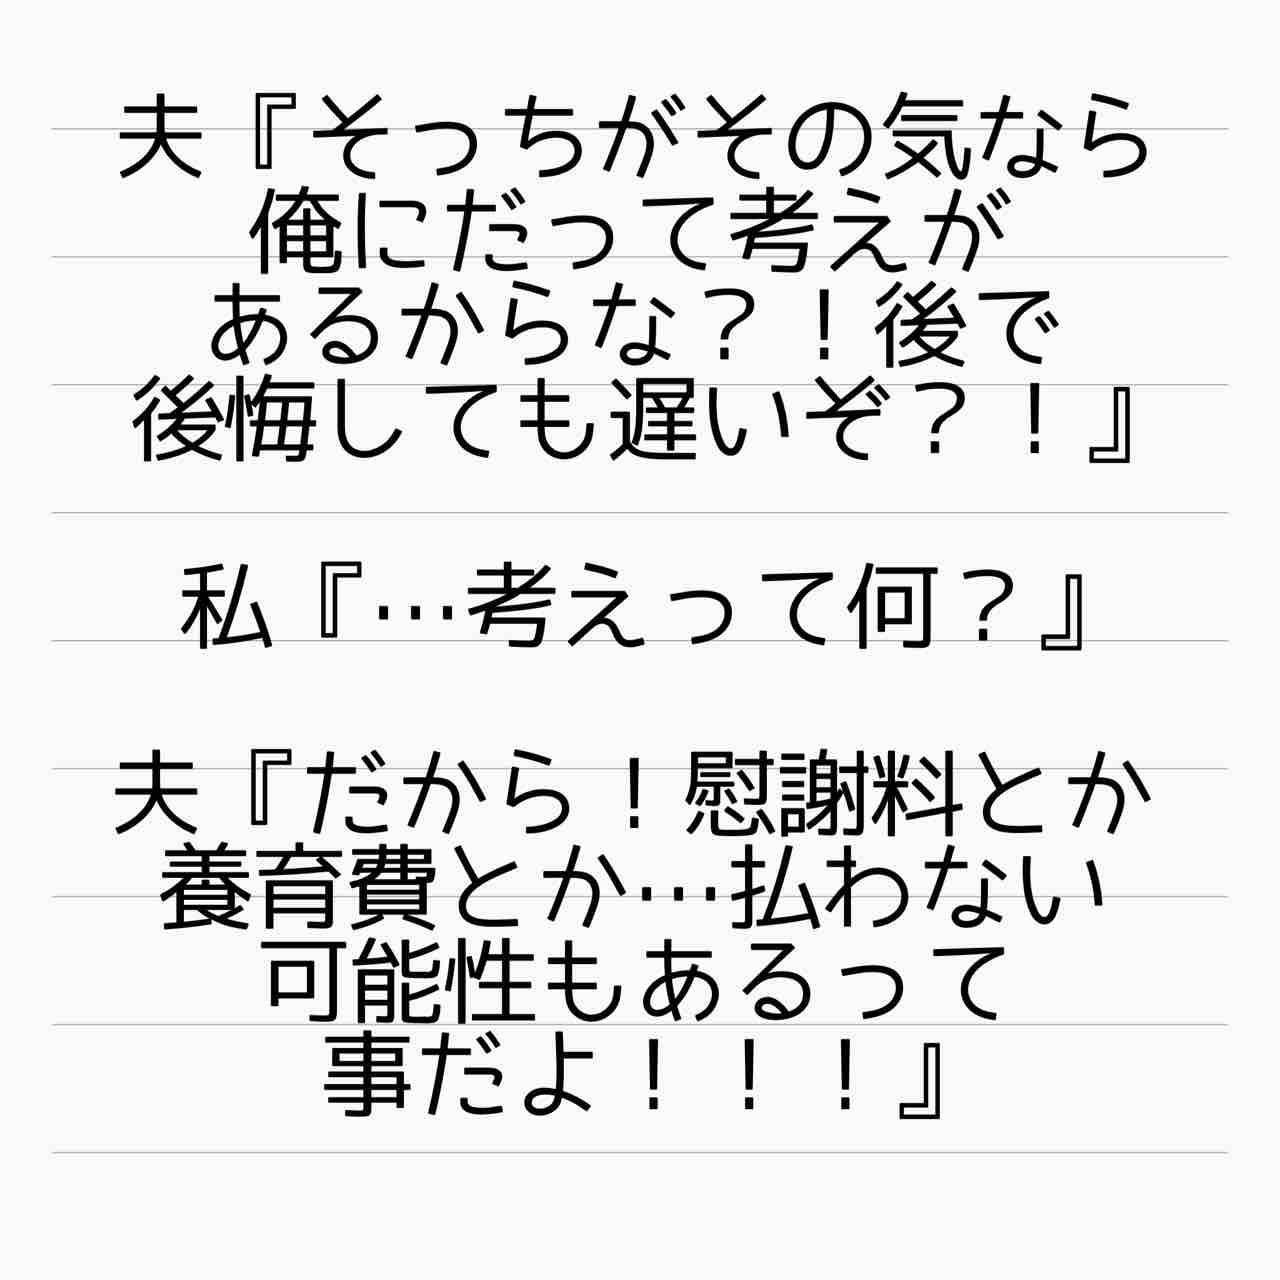 夫『そっちがその気なら
俺にだって考えが
あるからな？！後で
後悔しても遅いぞ？！』
私『…考えって何？』
夫『だから！慰謝料とか
養育費とか…払わない
可能性もあるって
事だよ！！！』